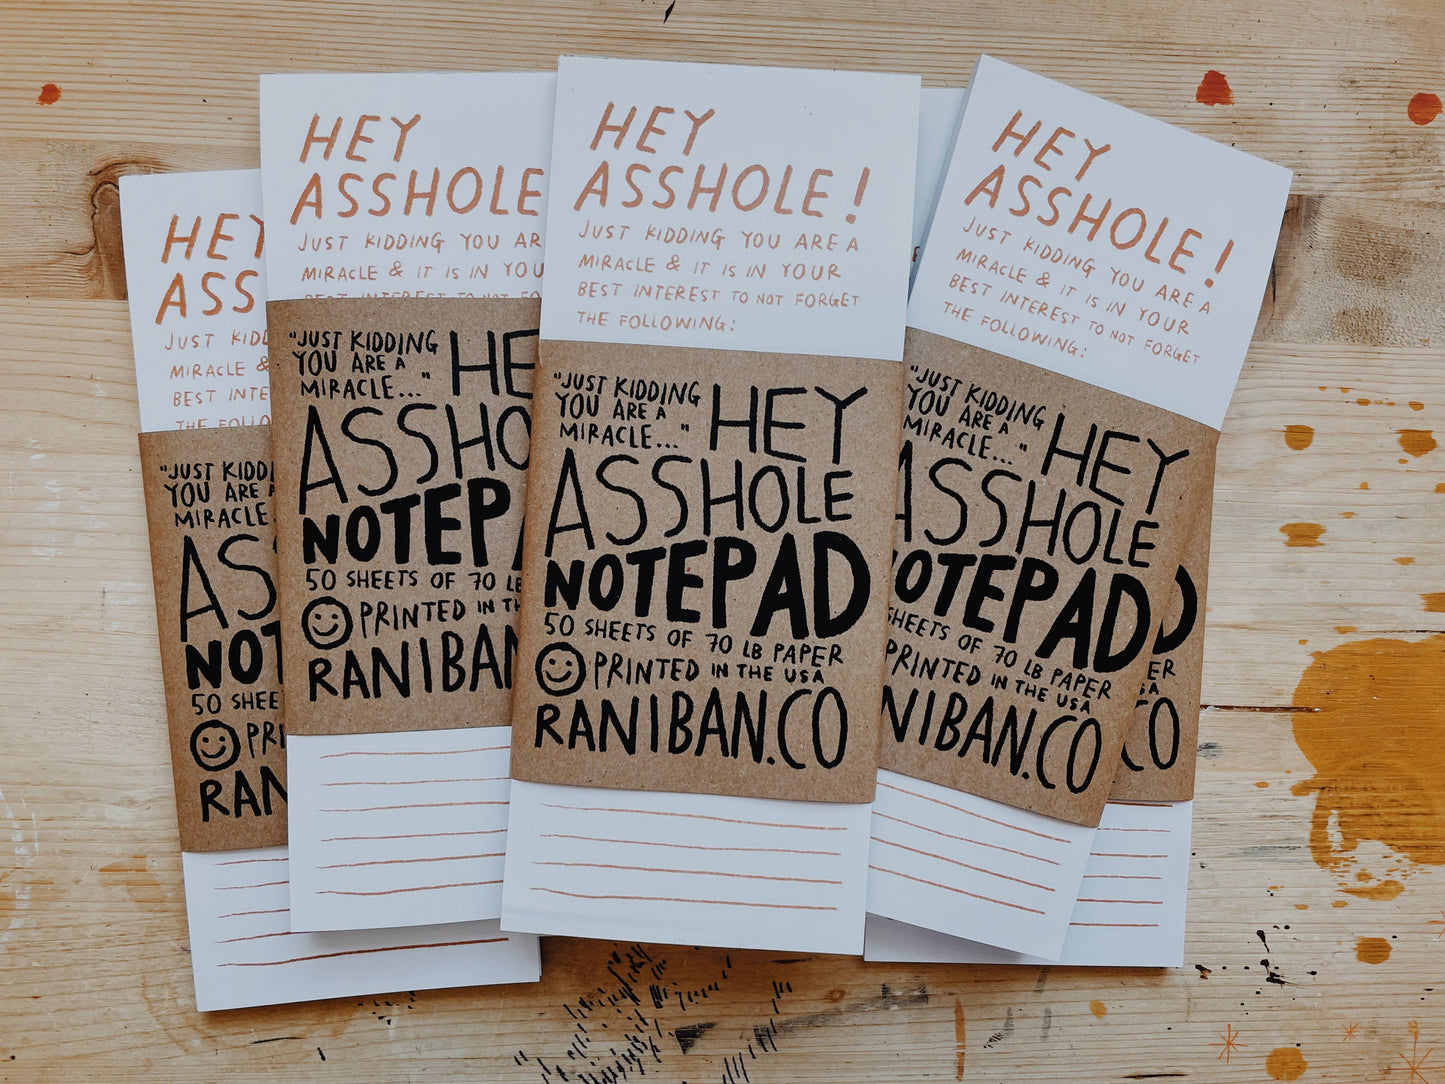 HEY
ASS
JUST KIDD
MIRACLE &
BEST INTE
THE FOLLO
"JUST KIDDI
YOU ARE A
MIRACLE.
AS
NOT
50 SHEE
PRI
RAN
HEY
ASSHOLE
JUST KIDDING YOU AR
MIRACLE & IT IS IN YOU
BEST INTEREST TO NOT FO
"JUST KIDDING
YOU ARE A
MIRACLE..."
HE
ASSHO
NOTEP
50 SHEETS OF 70 LB
PRINTED IN TH
RANIBAN
HEY
ASSHOLE!
JUST KIDDING YOU ARE A
MIRACLE & IT IS IN YOUR
BEST INTEREST TO NOT FORGET
THE FOLLOWING:
"JUST KIDDING
YOU ARE A
MIRACLE..."
HEY
ASSHOLE
NOTEPAD
50 SHEETS OF 70 LB PAPER
PRINTED IN THE USA
RANIBAN.CO
HEY
ASSHOLE!
JUST KIDDING YOU ARE A
MIRACLE & IT IS IN YOUR
BEST INTEREST TO NOT FORGET
THE FOLLOWING:
"JUST KIDDING
YOU ARE A
MIRACLE..."
HEY
ASSHOLE
OTEPAD
SHEETS OF 70 LB PAPER
PRINTED IN THE USA
NIBAN.CO
D
PER
SA
CO